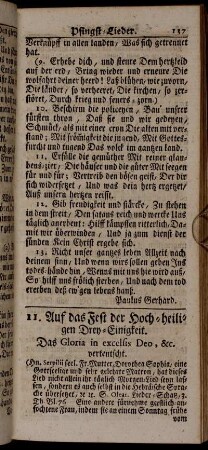 Pfingst-Lieder. 117
Verknüpff in allen landen, Was sich getrennet
hat.
(9. Erhebe dich, und steure Dem hertzleid
auf der erd, Bring wieder und erneure Die
wolfahrt deiner heerd! Laß blühen, wie zuvorn,
Die länder, so verheeret, Die kirchen, so zer-
störet, Durch krieg und feuers, zorn.)
10. Beschirm die policeyen, Bau unsrer
fürsten thron, Daß sie und wir gedeyen,
Schmück, als mit einer cron Die alten mit ver-
stand, Mit frömmigkeit die jugend, Mit Gottes-
furcht und tugend Das volk im gantzen land.
11. Erfülle die gemüther Mit reiner glau-
bens-zier, Die häuser und die güter Mit seegen
für und für; Vertreib den bösen geist, Der dir
sich widersetzet, Und was dein hertz ergetzet,
Aus unsern hertzen reißt.
12. Gib freudigkeit und stärcke, Zu stehen
in dem streit, Den satans reich und wercke Uns
täglich anerbeut: Hilff kämpffen ritterlich, Da-
mit wir überwinden, Und ja zum dienst der
sünden Kein Christ ergebe sich.
13. Richt unser gantzes leben Allzeit nach
deinem sinn, Und wenn wirs sollen geben Ins
todes hände hin, Wenns mit uns hie wird aus,
So hilff uns frölich sterben, Und nach dem tod
ererben Deß ew'gen lebens hauß.
Paulus Gerhard.
11. Auf das Fest der Hoch-heili-
gen Drey-Einigkeit.
Das Gloria in excelsis Deo, &c.
verteutscht.
(Hn. Serpilii seel. Fr. Mutter, Dorothea Sophia, eine
Gottseelige und sehr gelehrte Matron, hat dieses
Lied nicht allein ihr täglich Morgen-Lied seyn lassen,
sondern es auch selbst in die Hebräische Spra-
che übersetzet, &c. S. Olear. Lieder-Schatz, 3.
Th. Bl. 76. Eine andere fürnehme geistlich-an-
fochtene Frau, indem sie an einem Sonntag frühe
vom